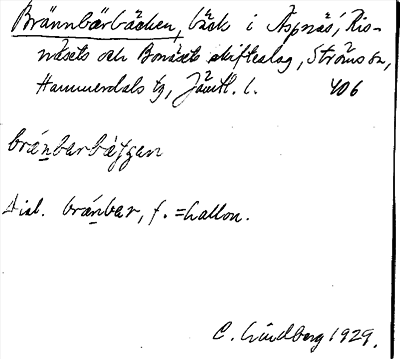 Brännbärbäcken, bäck i Äspnäs, Ris-
näsets och Bonäsets skifteslag, Ströms sn,
Hammerdals tg, Jämtl. l. 406
brá̀nbarbä̀ʃʃan
Dial. brá̀nbar, f. = hallon.
C. Lindberg 1929.